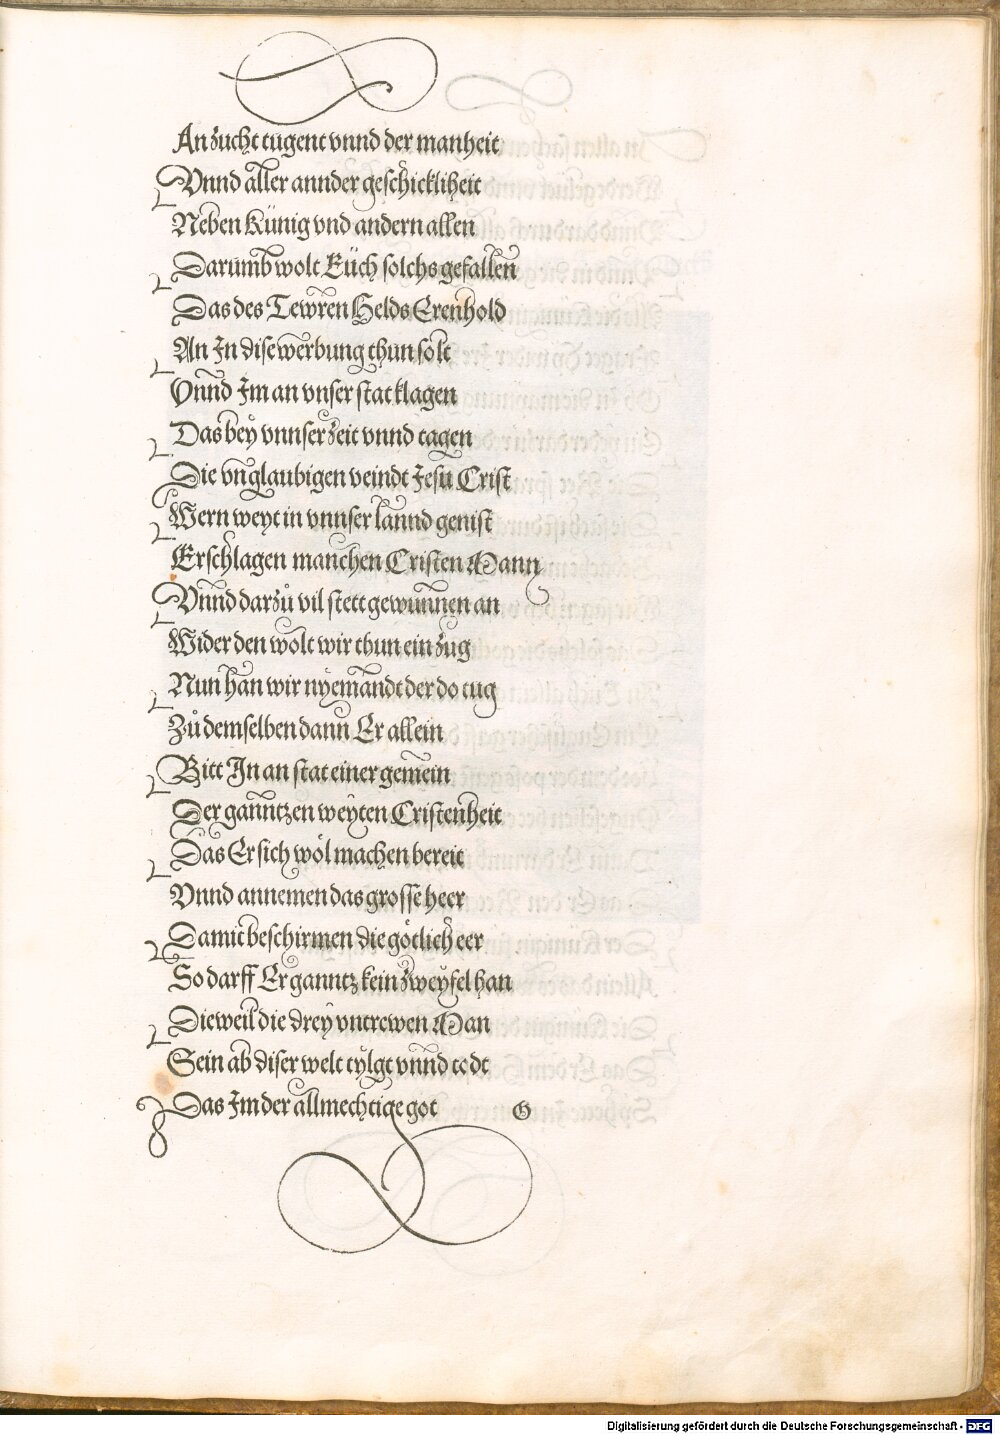 An zucht tugent vnnd der manheit
Vnnd aller annder geschickliheit
Neben Künig vnd andern allen
Darumb wolt Euch solchs gefallen
Das des Tewren Helds Erenhold
An In dise werbung thun solt
Vnnd Im an vnser stat klagen
Das bey vnnser zeit vnnd tagen
Die vnglaubigen veindt Jesu Crist
Wern weyt in vnnser lannd genist
Erschlagen manchen Cristen Mann
Vnnd darzů vil stett gewunnen an
Wider den wolt wir thun ein zug
Nun han wir nyemandt der do tug
Zů demselben dann Er allein
Bitt In an stat einer gemein
Der ganntzen weyten Cristenheit
Das Er sich wöl machen bereit
Vnnd annemen das grosse heer
Damit beschirmen die götlich eer
So darff Er ganntz kein zweyfel han
Dieweil die drey vntrewen Man
Sein ab diser welt tylgt vnnd todt
Das Im der allmechtige got G
Digitalisierung gefördert durch die Deutsche Forschungsgemeinschaft - DFG